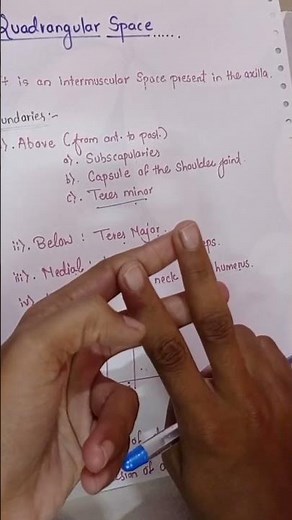 Quadrangular Space......
t is an intermuscular Space present in the axilla.
undaries:-
). Above (from ant. to post.)
a). Subscapularies
b). Capsule of the Shoulder joint.
c). Teres minor
ii). Below : Teres Major.
iii). Medial : eps.
iv). neck humerus.
of
sion of